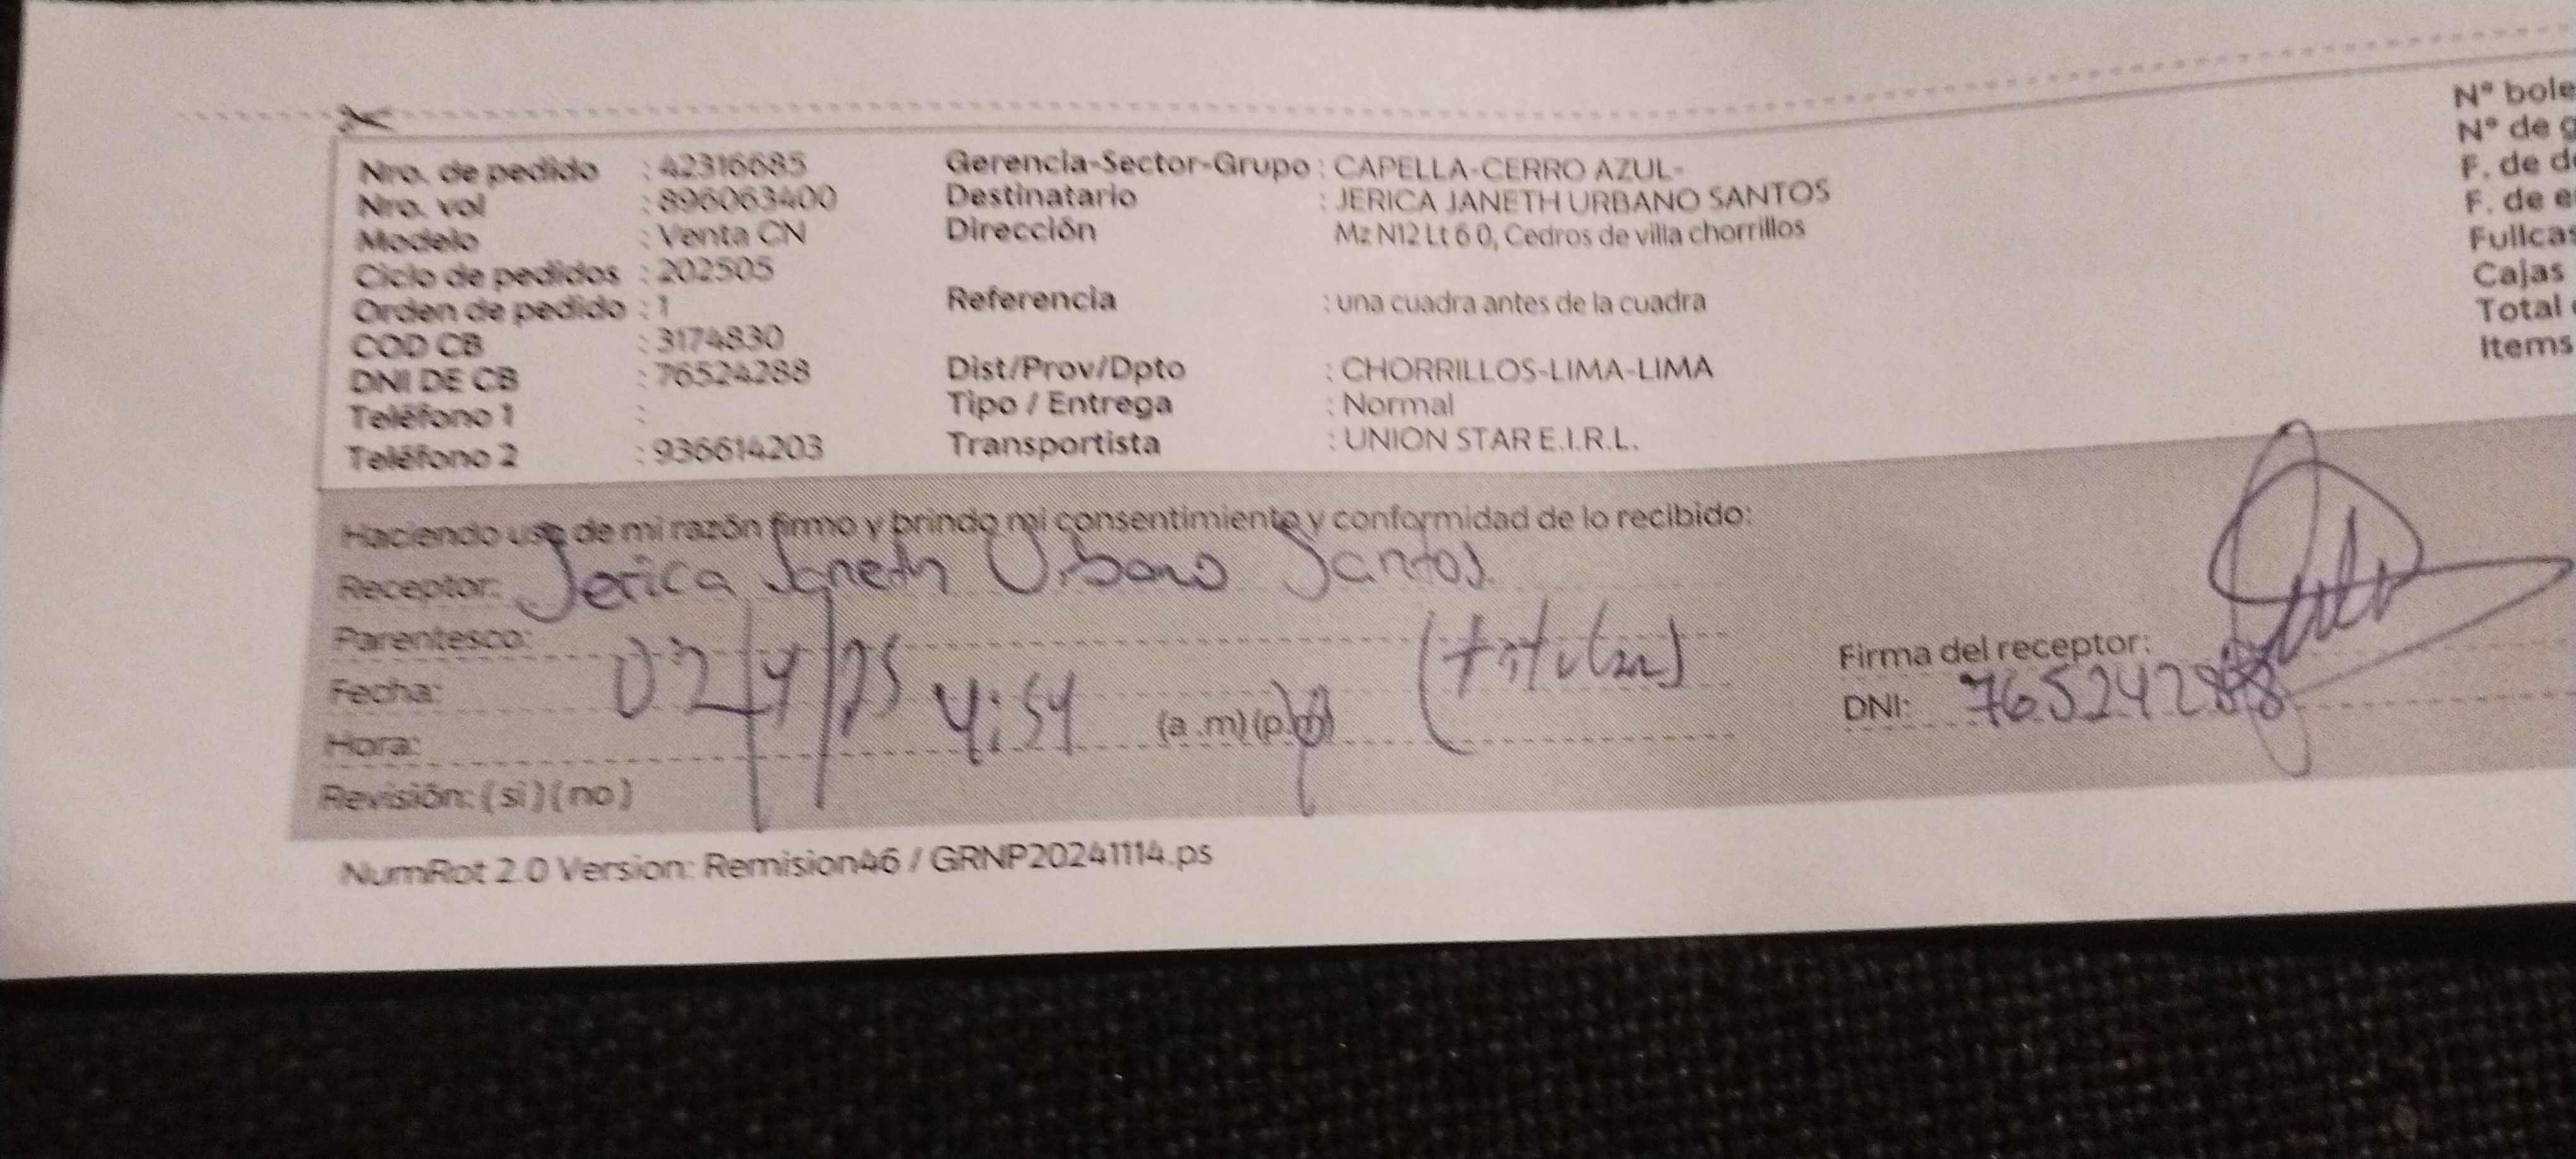 Nro. de pedido : 42316685 Gerencia-Sector-Grupo : CAPELLA-CERRO AZUL- N° bole
Nro. vol : 896063400 Destinatario : JERICA JANETH URBANO SANTOS N° de g
Modelo : Venta CN Dirección Mz N12 Lt 6 0, Cedros de villa chorrillos F. de de
Ciclo de pedidos : 202505 F. de e
Orden de pedido : 1 Referencia : una cuadra antes de la cuadra Fullcas
COD CB : 3174830 Cajas
DNI DE CB : 76524288 Dist/Prov/Dpto : CHORRILLOS-LIMA-LIMA Total
Teléfono 1 : Tipo / Entrega : Normal Items
Teléfono 2 : 936614203 Transportista : UNION STAR E.I.R.L.
Haciendo uso de mi razón firmo y brindo mi consentimiento y conformidad de lo recibido:
Receptor: Jerica Janeth Urbano Santos
Parentesco: (titular) Firma del receptor:
Fecha: 02/4/25 DNI: 76524288
Hora: 4:54 (a .m)(p.m)
Revisión: (si)(no)
NumRot 2.0 Version: Remision46 / GRNP20241114.ps